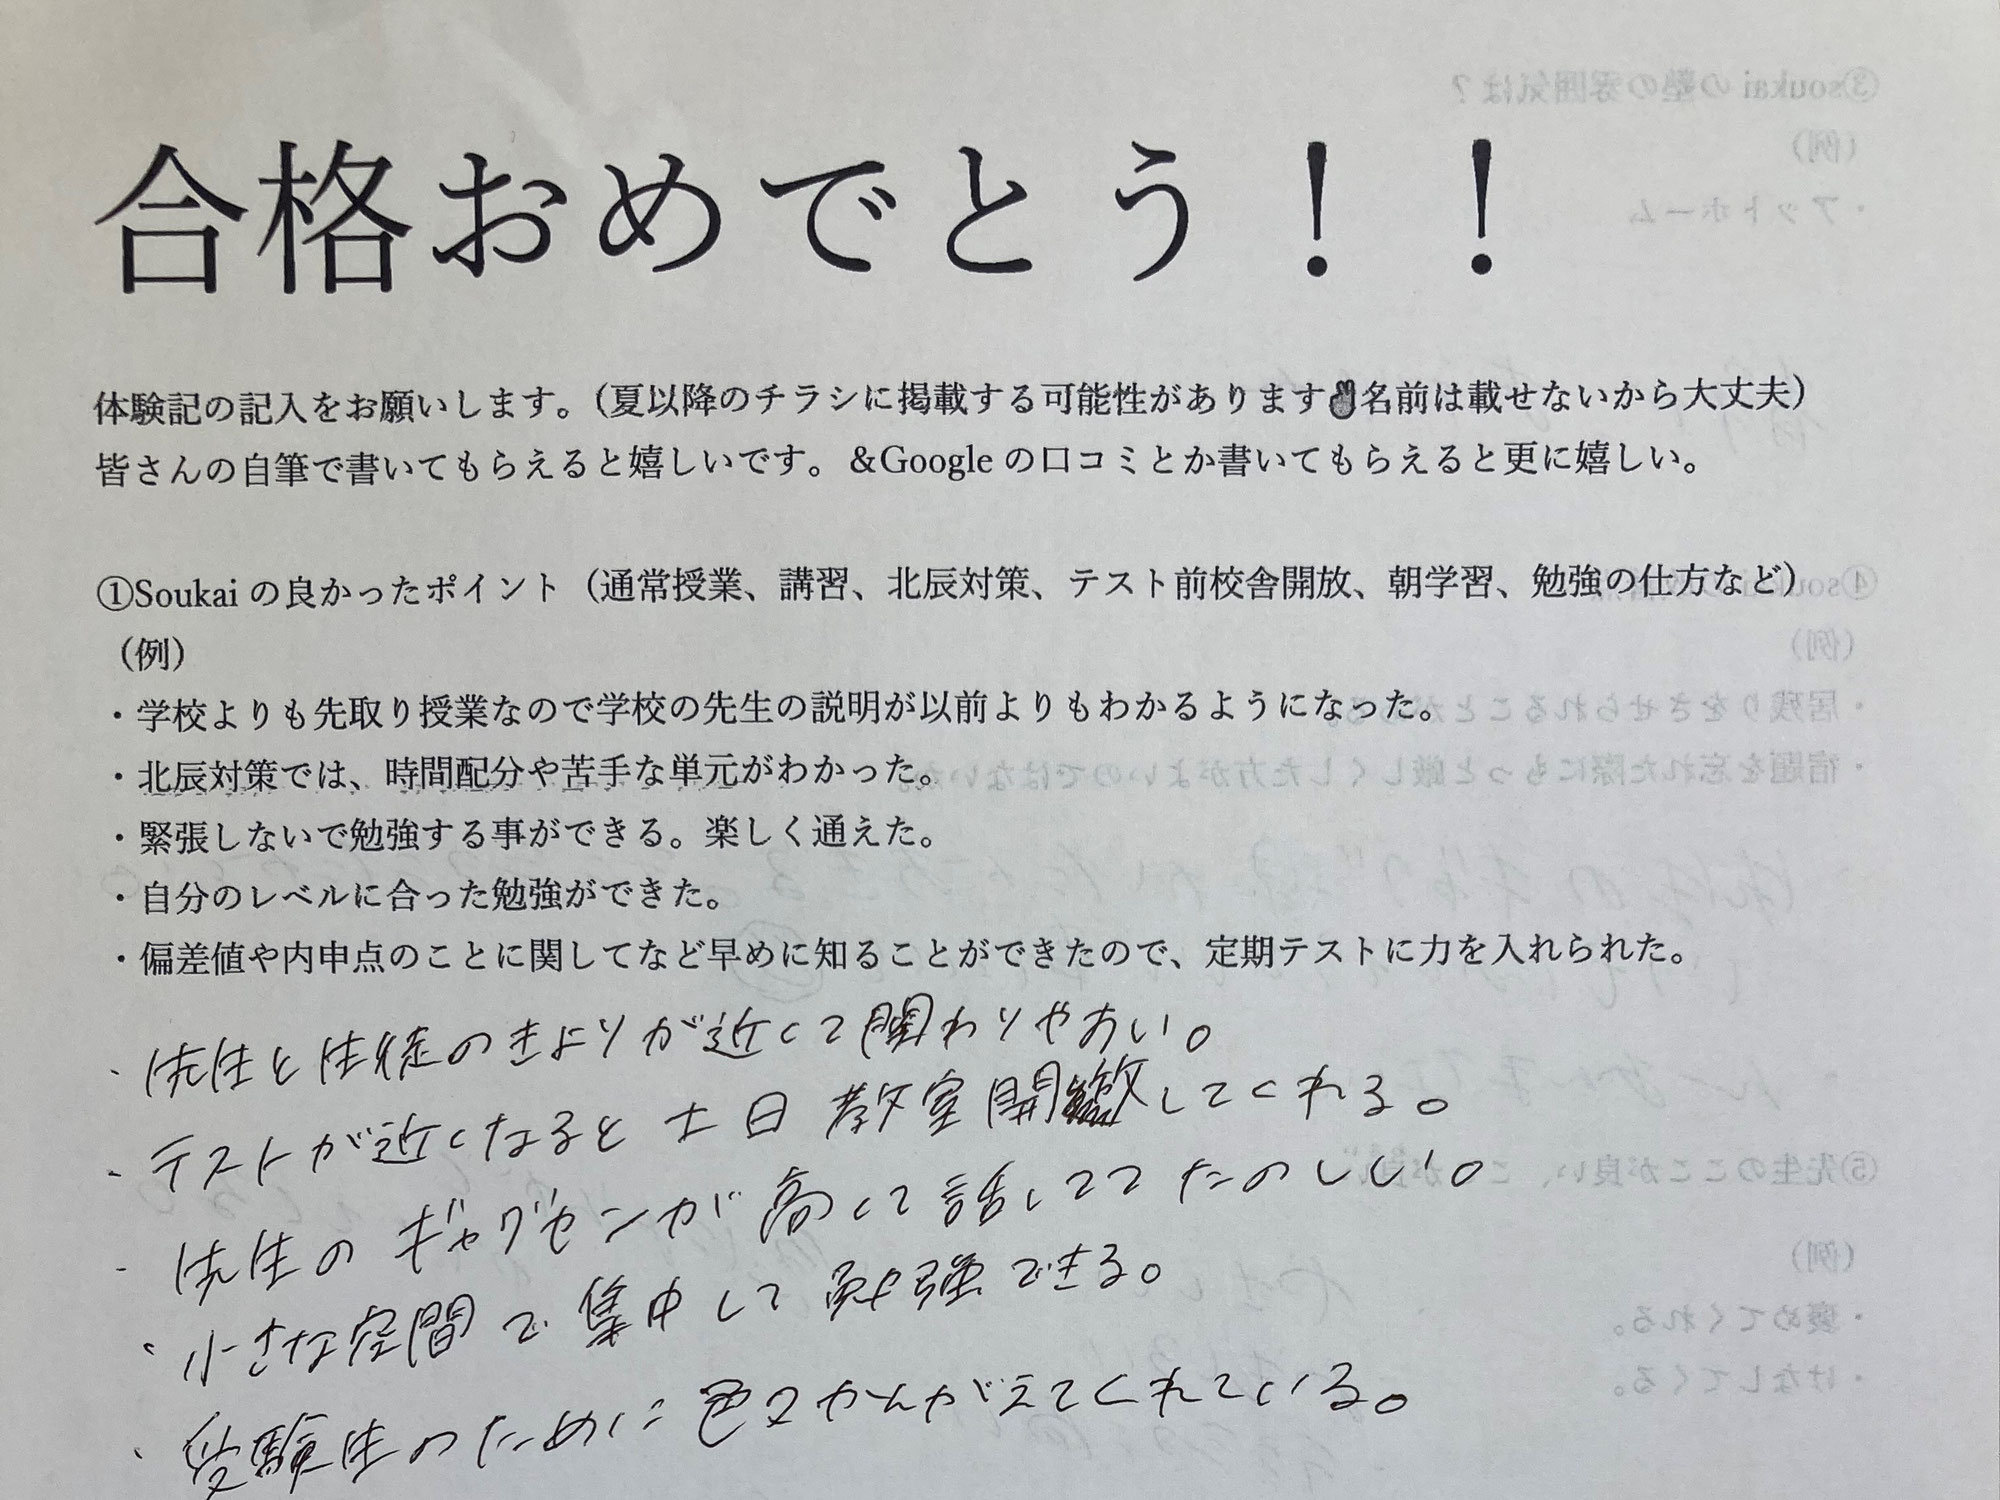 合格おめでとう！！
体験記の記入をお願いします。（夏以降のチラシに掲載する可能性があります✌名前は載せないから大丈夫）
皆さんの自筆で書いてもらえると嬉しいです。＆Google の口コミとか書いてもらえると更に嬉しい。
①Soukai の良かったポイント（通常授業、講習、北辰対策、テスト前校舎開放、朝学習、勉強の仕方など）
（例）
・学校よりも先取り授業なので学校の先生の説明が以前よりもわかるようになった。
・北辰対策では、時間配分や苦手な単元がわかった。
・緊張しないで勉強する事ができる。楽しく通えた。
・自分のレベルに合った勉強ができた。
・偏差値や内申点のことに関してなど早めに知ることができたので、定期テストに力を入れられた。
・先生と生徒のきょりが近くて関わりやすい。
・テストが近くなると土日教室開放してくれる。
・先生のギャグセンが高くて話してててたのしい。
・小さな空間で集中して勉強できる。
・受験生のために色々かんがえてくれている。
③soukai の塾の雰囲気は？
（例）
・アットホーム
④souk
（例）
・居残りをさせられることが
・宿題を忘れた際にもっと厳しくした方がよいのではないか
⑤先生のここが良い、こ
（例）
・褒めてくれる。
・けなしてくる。